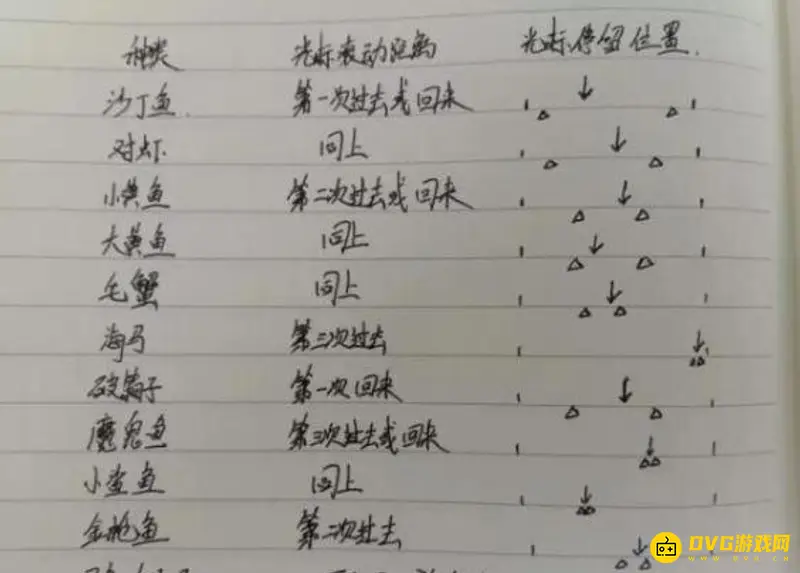 种类 光标滚动距离 光标停留位置.
沙丁鱼 第一次过去或回来
对虾 同上
小黄鱼 第二次过去或回来
大黄鱼 同上
毛蟹 同上
海马 第三次过去
破箱子 第一次回来
魔鬼鱼 第三次过去或回来
小鲨鱼 同上
金枪鱼 第二次过去
DVG游戏网